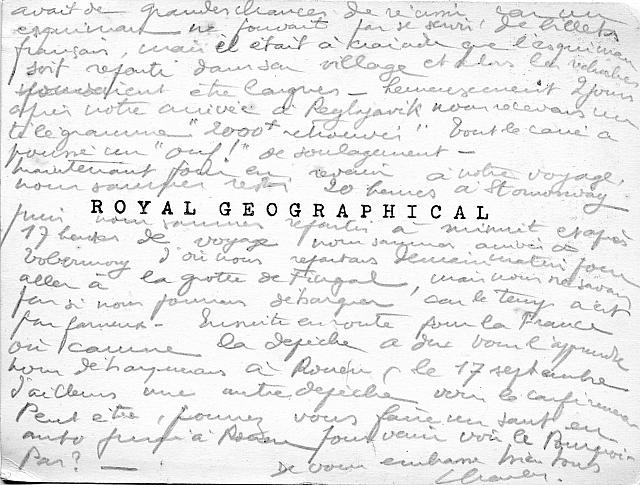 avait de grandes chances de réussir car un
esquimau ne pouvant pas se servir de billets
français, mais il était à craindre que l'esquimau
soit reparti dans son village et alors les recherches
pouvaient être longues - heureusement 2 jours
après notre arrivée à Reykjavik nous recevons un
télégramme "2000f retrouvés" Tout le carré a
poussé un "ouf!" de soulagement -
maintenant pour en revenir à notre voyage,
nous sommes restés 20 heures à Stornoway
ROYAL GEOGRAPHICAL
puis nous sommes repartis à minuit et après
17 heures de voyage nous sommes arrivés à
Tobermory d'où nous repartons demain matin pour
aller à la grotte de Fingal, mais nous ne savons
pas si nous pourrons débarquer car le temps n'est
pas fameux - Ensuite en route pour la France
où comme la dépêche a dû vous l'apprendre
nous débarquons à Rouen, le 17 septembre
d'ailleurs une autre dépêche vous le confirmera
Peut être, pourrez vous faire un saut en
auto jusqu'à Rouen pour venir voir le Pourquoi
Pas? - Je vous embrasse bien tous
Charles.